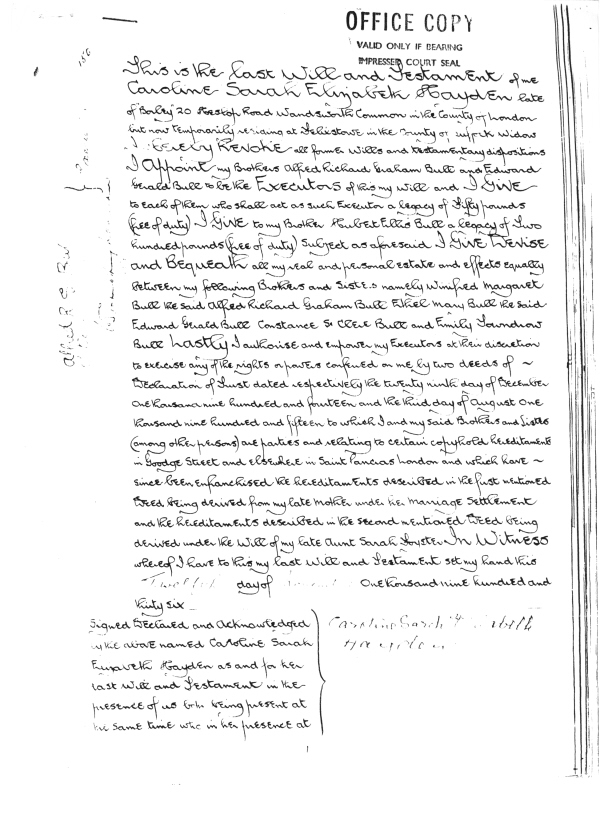 OFFICE COPY
VALID ONLY IF BEARING
IMPRESSED COURT SEAL
This is the last Will and Testament of me
Caroline Sarah Elizabeth Hayden late
of "Borley" 20 Heslop Road Wandsworth Common in the County of London
but now temporarily residing at Felixstowe in the County of Suffolk Widow
I hereby Revoke all former Wills and testamentary dispositions
I Appoint my Brothers Alfred Richard Graham Bull and Edward
Gerald Bull to be the Executors of this my Will and I Give
to each of them who shall act as such Executor a legacy of Fifty pounds
(free of duty) I Give to my Brother Hubert Ellis Bull a legacy of Two
hundred pounds (free of duty) Subject as aforesaid I Give Devise
and Bequeath all my real and personal estate and effects equally
between my following Brothers and Sisters namely Winifred Margaret
Bull the said Alfred Richard Graham Bull Ethel Mary Bull the said
Edward Gerald Bull Constance St Clere Bull and Emily Yarindrow
Bull Lastly I authorise and empower my Executors at their discretion
to exercise any of the rights or powers conferred on me by two deeds of ~
Declaration of Trust dated respectively the twenty ninth day of December
One thousand nine hundred and fourteen and the third day of August One
thousand nine hundred and fifteen to which I and my said Brothers and Sisters
(among other persons) are parties and relating to certain copyhold hereditaments
in Goodge Street and elsewhere in Saint Pancras London and which have ~
since been enfranchised the hereditaments described in the first mentioned
Deed being derived from my late Mother under her Marriage Settlement
and the hereditaments described in the second mentioned Deed being
derived under the Will of my late Aunt Sarah Foyster In Witness
whereof I have to this my last Will and Testament set my hand this
Twelfth day of One thousand nine hundred and
thirty six
Signed Declared and Acknowledged
by the above named Caroline Sarah
Elizabeth Hayden as and for her
last Will and Testament in the
presence of us both being present at
the same time who in her presence at
Caroline Sarah Elizabeth
Hayden
Alfred R G Bull
1